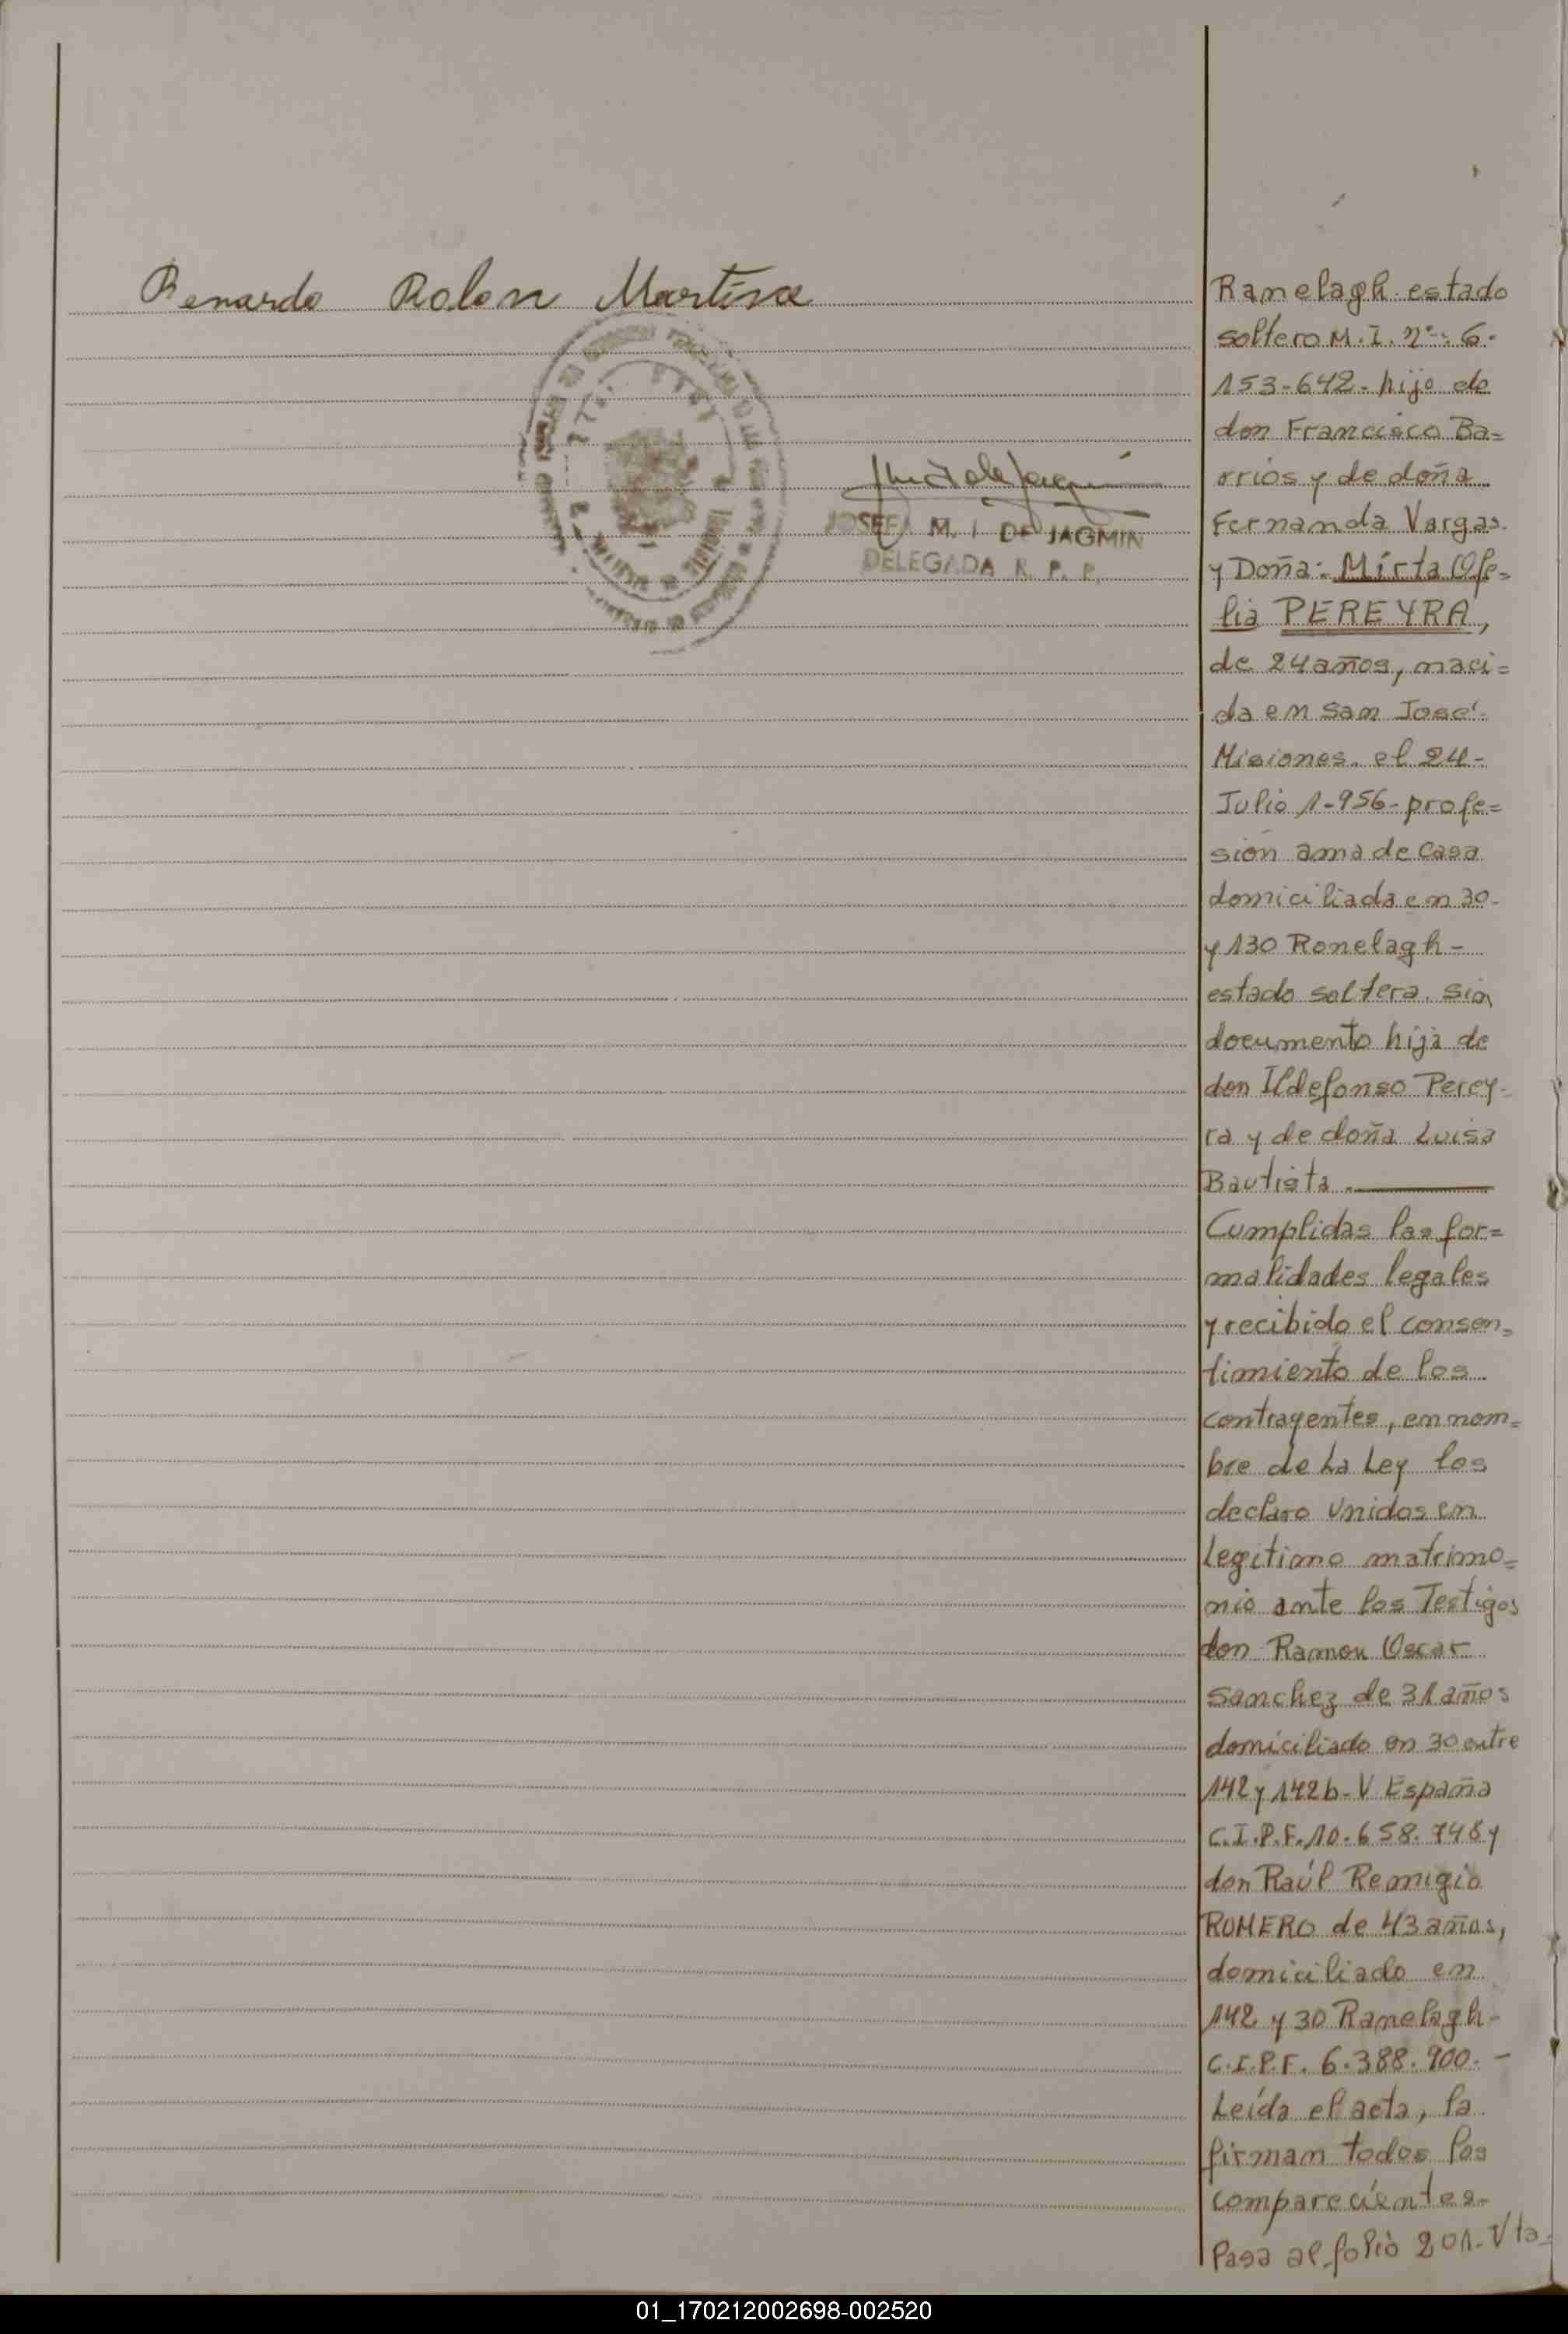 Renardo Rolon Martinez
JOSEFA M. I DE JAGMIN
DELEGADA R. P. P.
Ranelagh estado
soltero M.I. nº: 6.
153-642- hijo de
don Francisco Ba=
rrios y de doña
Fernanda Vargas.
y Doña: Mirta Ofe=
lia PEREYRA,
de 24 años, naci=
da en San José-
Misiones. el 24-
Julio 1-956- profe=
sión ama de casa
domiciliada en 30-
y 130 Ranelagh-
estado soltera. sin
documento hija de
don Ildefonso Perey-
ra y de doña Luisa
Bautista.
Cumplidas las for=
malidades legales
y recibido el consen=
timiento de los
contrayentes, en nom=
bre de La Ley los
declaro unidos en
legítimo matrimo=
nio ante los Testigos
don Ramon Oscar
Sanchez de 31 años
domiciliado en 30 entre
142 y 142b- V España
C.I.P.F. 10.658.748 y
don Raúl Remigio
ROMERO de 43 años,
domiciliado en
142 y 30 Ranelagh-
C.I.P.F. 6.388.900.-
Leída el acta, la
firman todos los
comparecientes-
Pasa al folio 201-Vta-
01_170212002698-002520